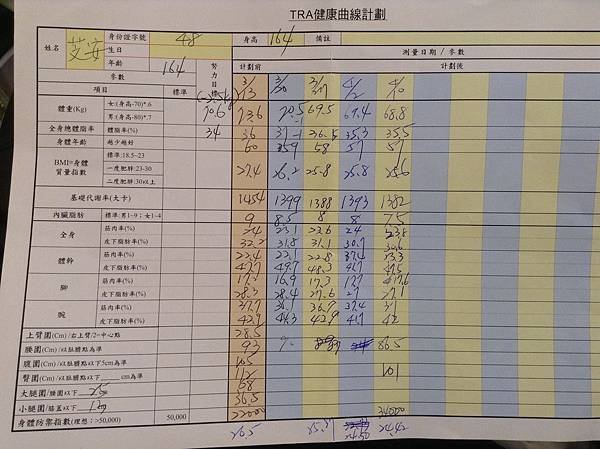 TRA健康曲線計劃
姓名 芝安 身份證字號 48 身高 164 備註
生日 測量日期 / 參數
年齡 164 努力目標 計劃前 計劃後
參數
項目 標準 3/13 3/20 4/2
體重(Kg) 女:(身高-70)*.6 70.6 73.6 70.5 69.5 69.4 68.8
男:(身高-80)*.7
全身總體脂率 體脂率(%) 34 36 36.5 35.3 35.5
身體年齡 越少越好 60 59 58 57 57
BMI=身體質量指數 標準:18.5~23 27.4 26.2 25.8 25.8 25.6
一度肥胖:23-30
二度肥胖:30以上
基礎代謝率(大卡) 1454 1399 1388 1393 1382
內臟脂肪 標準:男1~9；女1~4 9 8.5 8 8 7.5
全身 筋肉率(%) 24 23.1 23.6 24 23.8
皮下脂肪率(%) 32.2 31.5 31.1 30.7 30.6
體幹 筋肉率(%) 22.4 22.1 22.8
皮下脂肪率(%) 49.7 48.3
腳 筋肉率(%) 16.9 17.3 17.6
皮下脂肪率(%) 28.3 28.4 27.6 27 27.1
腕 筋肉率(%) 37.7 36.1 36.9 37.4 37
皮下脂肪率(%) 42.9 44.3 42.9 41.7 42
上臂圍(Cm) /右上臂/2=中心點 28.5
腰圍(Cm) /以肚臍點為準 93 86.5
腹圍(Cm) /以肚臍點以下5cm為準 101
臀圍(Cm) /以肚臍點以下 cm為準
大腿圍/腰圍以下 25 58
小腿圍/膝蓋以下 36.5
身體防禦指數(理想：>50,000) 50,000 22000 34000
26.5 24.50 24.42